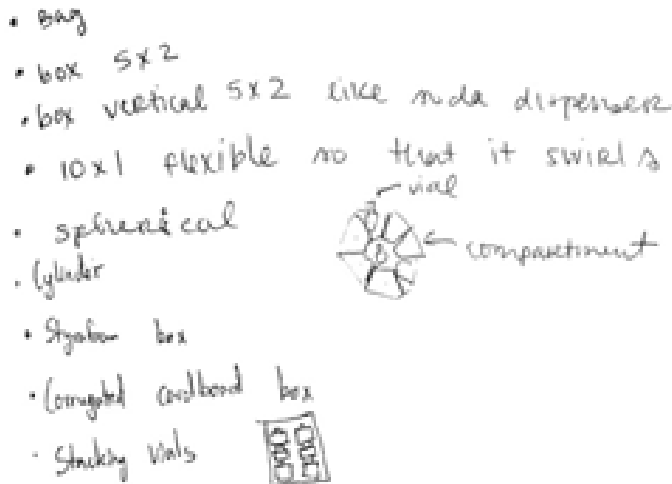 • Bag
• box 5x2
• box vertical 5x2 like soda dispenser
• 10x1 flexible so that it swirls
vial
• spherical
compartment
• Cylinder
• Styrofoam box
• Corrugated cardboard box
• Stacking Vials